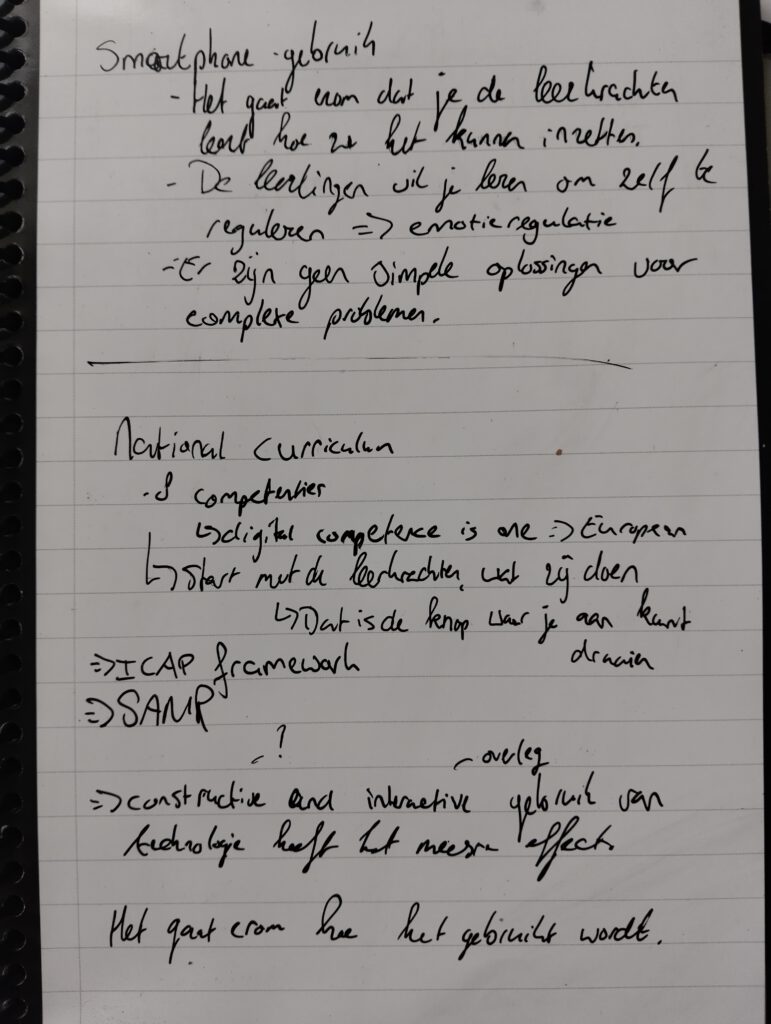 Smartphone-gebruik
- Het gaat erom dat je de leerkrachten
leert hoe ze het kunnen inzetten.
- De leerlingen wil je leren om zelf te
reguleren => emotieregulatie
- Er zijn geen simpele oplossingen voor
complexe problemen.
National curriculum
. 8 competenties
↳ digital competence is one => European
↳ Start met de leerkrachten, wat zij doen
↳ Dat is de knop waar je aan kunt
draaien
=> ICAP framework
=> SAMR
- ? - overleg
=> constructive and interactive gebruik van
technologie heeft het meeste effect.
Het gaat erom hoe het gebruikt wordt.